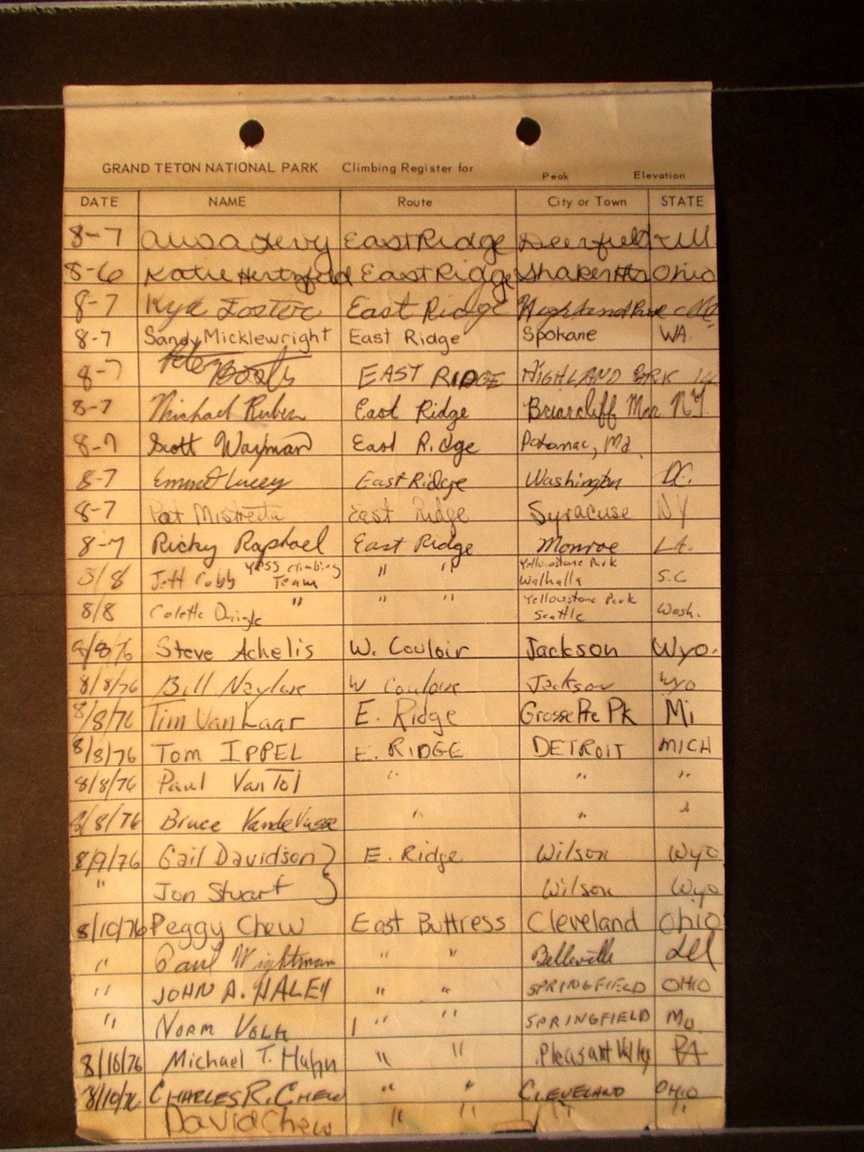 GRAND TETON NATIONAL PARK Climbing Register for Peak Elevation
DATE NAME Route City or Town STATE
8-7 East Ridge Deerfield Ill
8-6 Katie East Ridge Shaker Hts Ohio
8-7 Kyle Foster East Ridge Highland Park
8-7 Sandy Micklewright East Ridge Spokane WA
8-7 Peter EAST RIDGE HIGHLAND
8-7 Michael Rubin East Ridge Briarcliff NY
8-7 Scott Wayman East Ridge Potomac, Md.
8-7 East Ridge Washington D.C.
8-7 Pat East Ridge Syracuse NY
8-7 Ricky Raphael East Ridge Monroe LA.
8/8 Jeff Cobb Climbing Team " " Yellowstone Park Walhalla S.C
8/8 Colette " " " Yellowstone Park Seattle Wash.
8/8/76 Steve Achelis W. Couloir Jackson Wyo.
8/8/76 Bill Naylor W Couloir Jackson Wyo
8/8/76 Tim Van Laar E. Ridge Grosse Pte Pk Mi
8/8/76 TOM IPPEL E. RIDGE DETROIT MICH
8/8/76 Paul Van Tol " " "
8/8/76 Bruce " " "
8/9/76 Gail Davidson } E. Ridge Wilson Wyo
" Jon Stuart } Wilson Wyo
8/10/76 Peggy Chew East Buttress Cleveland Ohio
" Paul Wightman " " Belleville
" JOHN A. HALEY " " SPRINGFIELD OHIO
" NORM VOLK " " SPRINGFIELD Mo.
8/10/76 Michael T. Hahn " " Pleasant Valley PA
8/10/76 CHARLES R. CHEW " " CLEVELAND OHIO
David Chew " " " " "